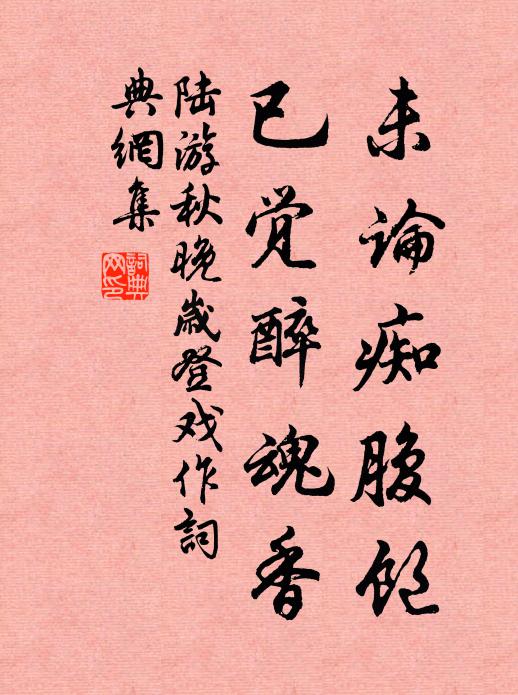 未论痴腹饱
已觉醉魂香
陆游秋晚岁登戏作词
典网集
词典网印